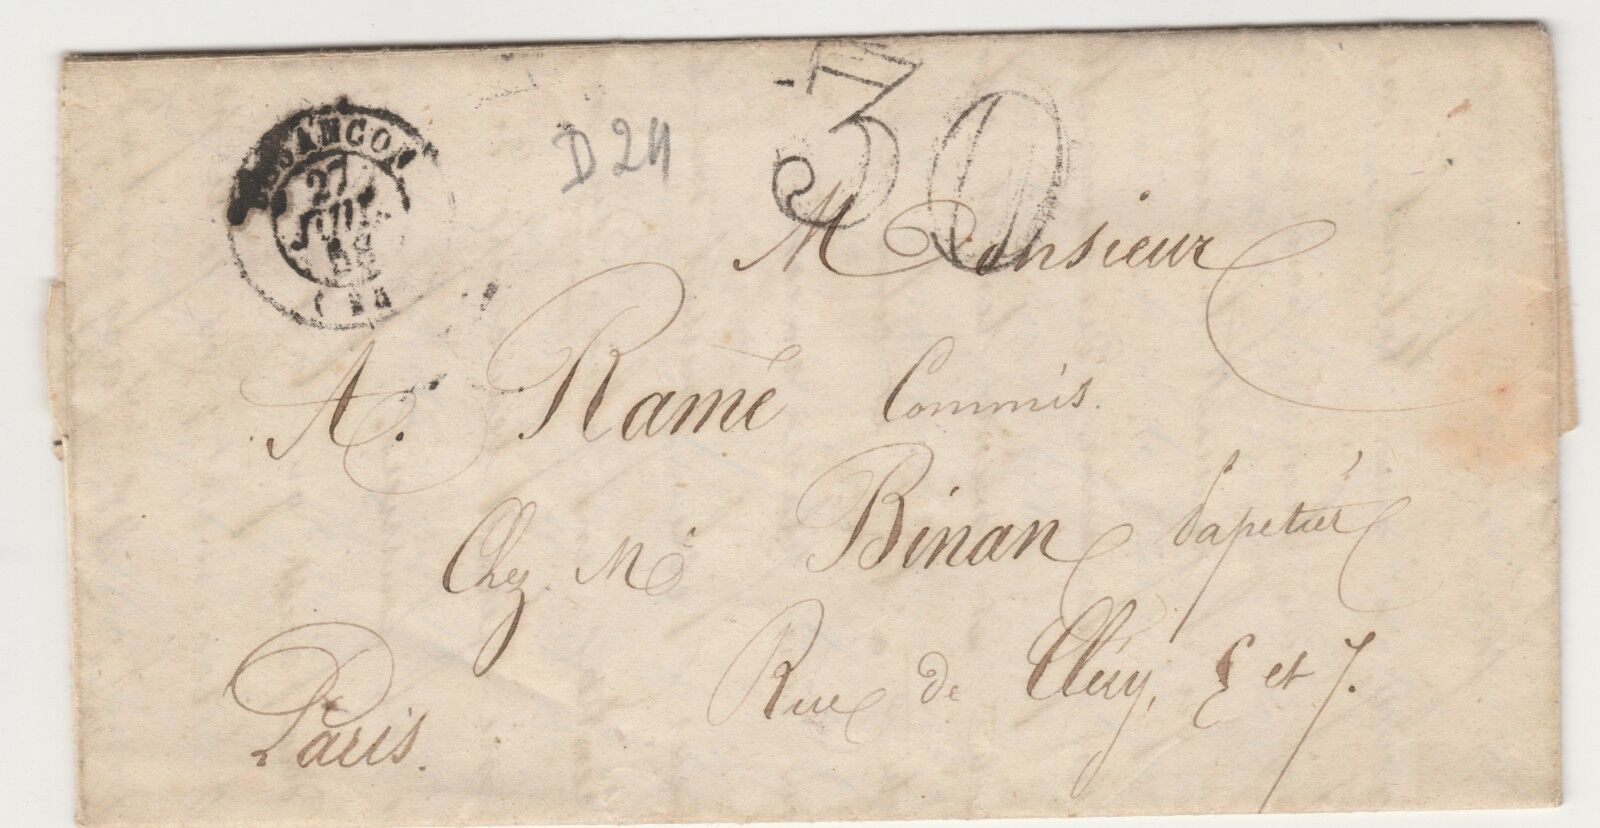 BESANCON
27
JUIL
D 24
30
Monsieur
A. Ramé Commis.
Chez Mr Binan Tapetier
Rue de Cléry, 5 et 7.
Paris.